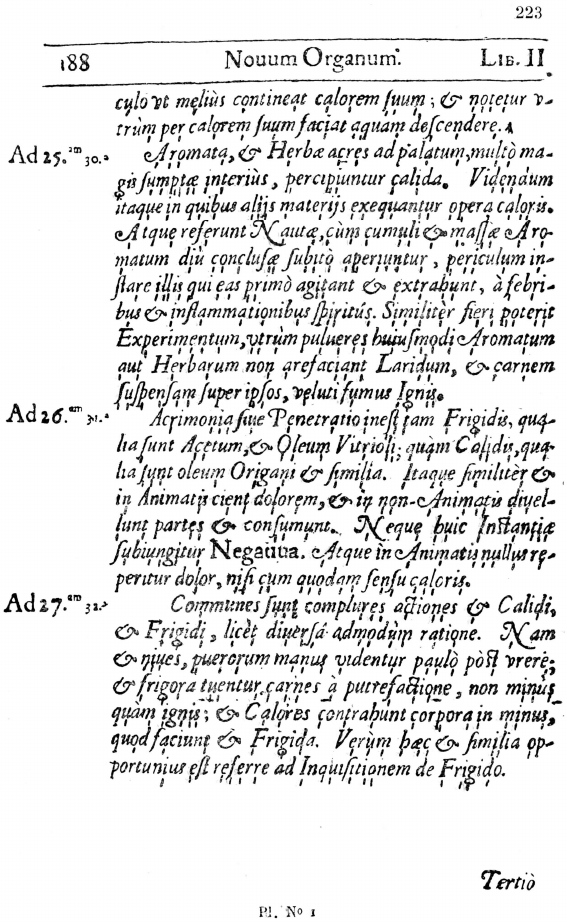 223
188 Nouum Organum. LIB. II
culo vt meliùs contineat calorem suum; & notetur v-
trùm per calorem suum faciat aquam descendere.
Ad 25.am 30.a Aromata, & Herbæ acres ad palatum, multò ma-
gis sumptæ interiùs, percipiuntur calida. Videndum
itaque in quibus alijs materijs exequantur opera caloris.
Atque referunt Nautæ, cùm cumuli & massæ Aro-
matum diù conclusæ subitò aperiuntur, periculum in-
stare illis qui eas primò agitant & extrahunt, à febri-
bus & inflammationibus spiritús. Similitèr fieri poterit
Experimentum, vtrùm pulueres huiusmodi Aromatum
aut Herbarum non arefaciant Laridum, & carnem
suspensam super ipsos, veluti fumus Ignis.
Ad 26.am 31.a Acrimonia siue Penetratio inest tam Frigidis, qua-
lia sunt Acetum, & Oleum Vitrioli; quàm Calidis, qua-
lia sunt oleum Origani & similia. Itaque similitèr &
in Animatis cient dolorem, & in non-Animatis diuel-
lunt partes & consumunt. Neque huic Instantiæ
subiungitur Negatiua. Atque in Animatis nullus re-
peritur dolor, nisi cum quodam sensu caloris.
Ad 27.am 32.a Communes sunt complures actiones & Calidi,
& Frigidi, licèt diuersâ admodùm ratione. Nam
& niues, puerorum manus videntur paulò pòst vrere;
& frigora tuentur carnes à putrefactione, non minùs
quàm ignis; & Calores contrahunt corpora in minus,
quod faciunt & Frigida. Verùm hæc & similia op-
portunius est referre ad Inquisitionem de Frigido.
Tertiò
Pl. No 1